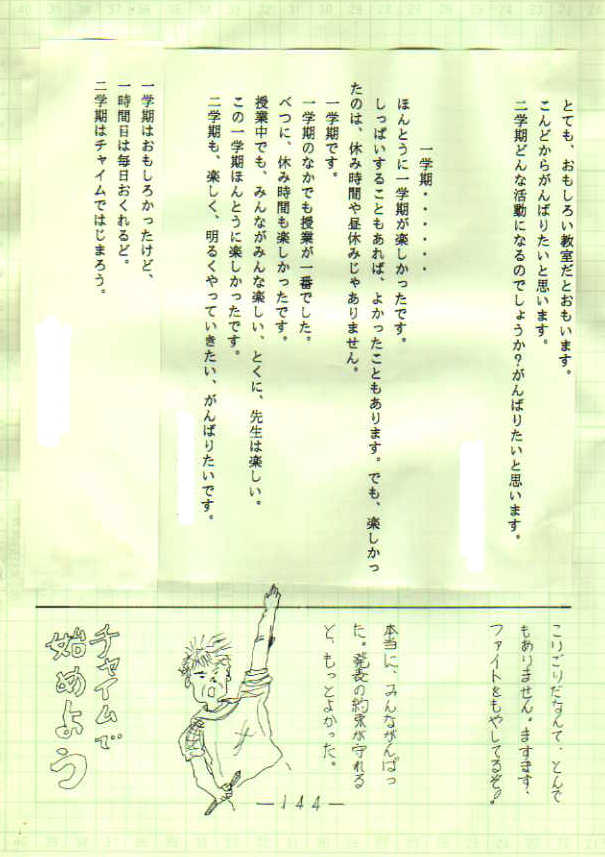 とても、おもしろい教室だとおもいます。
こんどからがんばりたいと思います。
二学期どんな活動になるのでしょうか？がんばりたいと思います。
一学期・・・・・・
ほんとうに一学期が楽しかったです。
しっぱいすることもあれば、よかったこともあります。でも、楽しかっ
たのは、休み時間や昼休みじゃありません。
一学期です。
一学期のなかでも授業が一番でした。
べつに、休み時間も楽しかったです。
授業中でも、みんながみんな楽しい、とくに、先生は楽しい。
この一学期ほんとうに楽しかったです。
二学期も、楽しく、明るくやっていきたい、がんばりたいです。
一学期はおもしろかったけど、
一時間日は毎日おくれるど。
二学期はチャイムではじまろう。
こりごりだなんて、とんで
もありません。ますます、
ファイトをもやしてるぞ！
本当に、みんながんばっ
た。発表の約束が守れる
と、もっとよかった。
チャイムで
始めよう
—144—